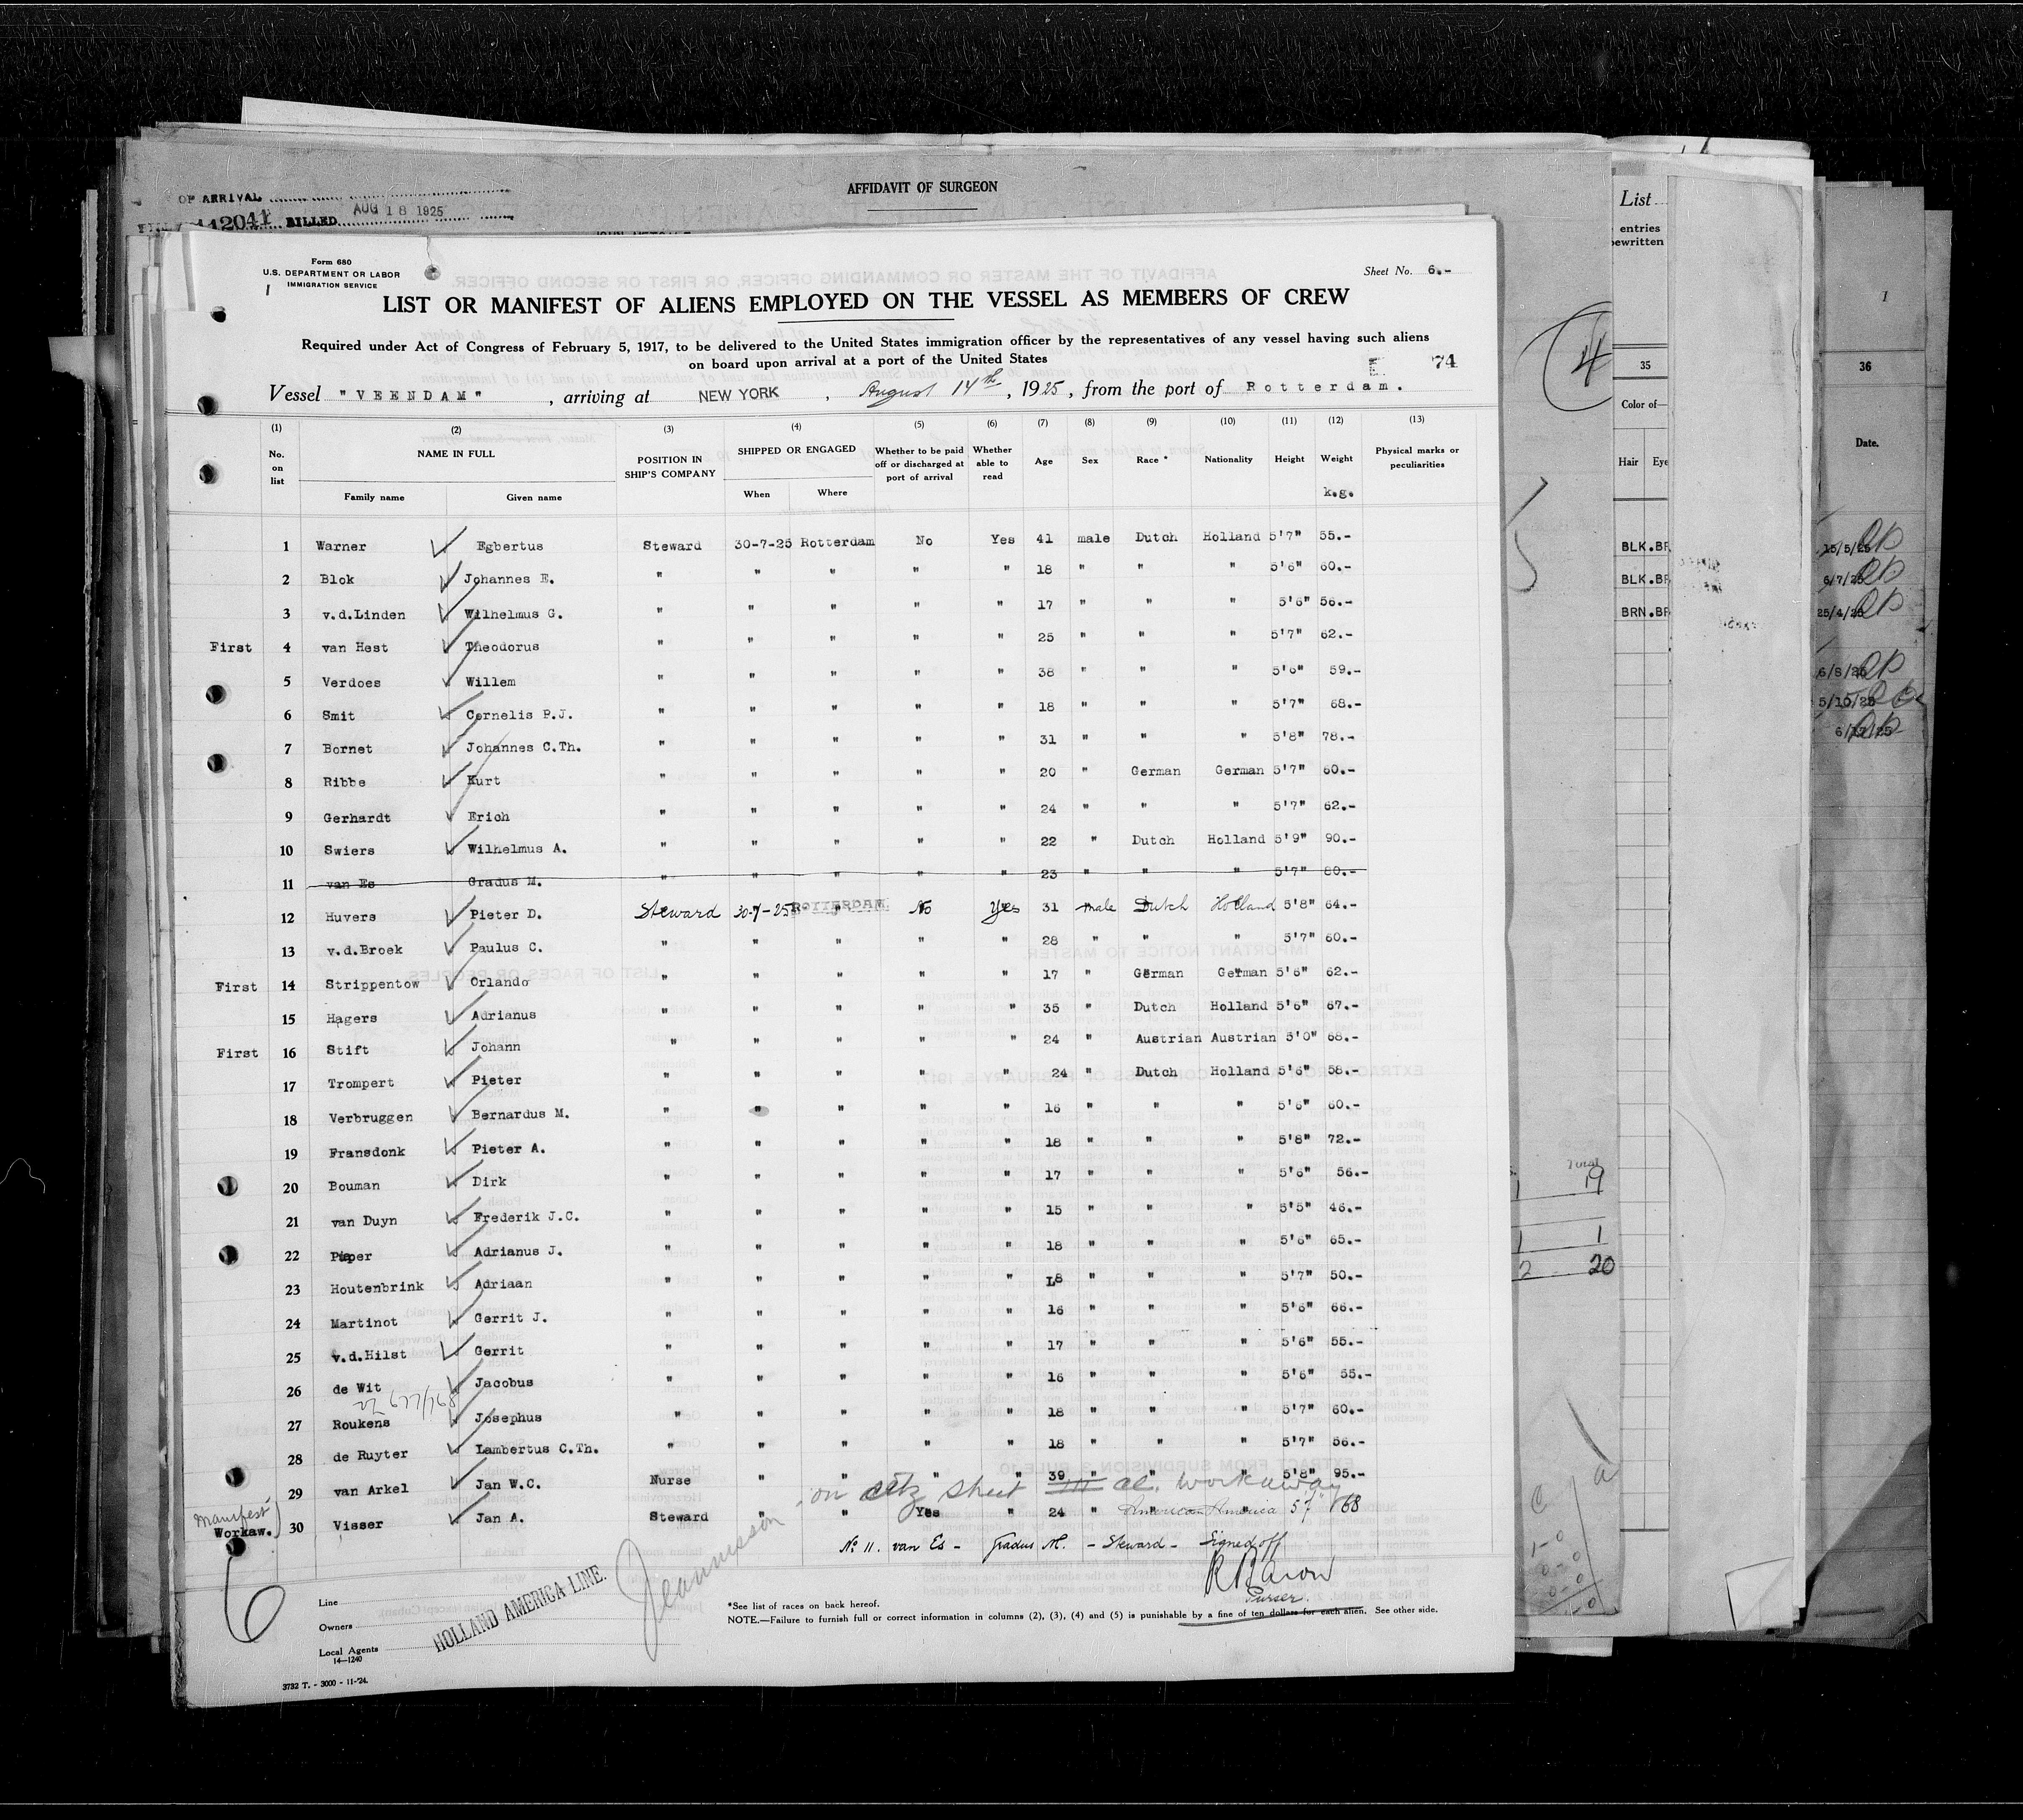 AFFIDAVIT OF SURGEON
OF ARRIVAL
112041 BILLED AUG 18 1925
List
entries
35
Color of—
Hair Eye
BLK.
BLK.
BRN.
1
36
Date.
15/5/25
6/7/25
25/4/25
Total
19
1 1
2 20
4
Form 680
U.S. DEPARTMENT OR LABOR
IMMIGRATION SERVICE
1
Sheet No. 6.-
LIST OR MANIFEST OF ALIENS EMPLOYED ON THE VESSEL AS MEMBERS OF CREW
Required under Act of Congress of February 5, 1917, to be delivered to the United States immigration officer by the representatives of any vessel having such aliens
on board upon arrival at a port of the United States
E 74
Vessel "VEENDAM" , arriving at NEW YORK , August 14th , 1925 , from the port of Rotterdam.
(1) (2) (3) (4) (5) (6) (7) (8) (9) (10) (11) (12) (13)
No. on list NAME IN FULL POSITION IN SHIP'S COMPANY SHIPPED OR ENGAGED Whether to be paid off or discharged at port of arrival Whether able to read Age Sex Race * Nationality Height Weight Physical marks or peculiarities
Family name Given name When Where k.g.
1 Warner Egbertus Steward 30-7-25 Rotterdam No Yes 41 male Dutch Holland 5'7" 55.-
2 Blok Johannes E. " " " " " 18 " " " 5'6" 60.-
3 v.d.Linden Wilhelmus G. " " " " " 17 " " " 5'6" 56.-
First 4 van Hest Theodorus " " " " " 25 " " " 5'7" 62.-
5 Verdoes Willem " " " " " 38 " " " 5'6" 59.-
6 Smit Cornelis P.J. " " " " " 18 " " " 5'7" 68.-
7 Bornet Johannes C.Th. " " " " " 31 " " " 5'8" 78.-
8 Ribbe Kurt " " " " " 20 " German German 5'7" 60.-
9 Gerhardt Erich " " " " " 24 " " " 5'7" 62.-
10 Swiers Wilhelmus A. " " " " " 22 " Dutch Holland 5'9" 90.-
11 van Es Gradus M. " " " " " 23 " " " 5'7" 80.-
12 Huvers Pieter D. Steward 30-7-25 ROTTERDAM No Yes 31 male Dutch Holland 5'8" 64.-
13 v.d.Broek Paulus C. " " " " " 28 " " " 5'7" 60.-
First 14 Strippentow Orlando " " " " " 17 " German German 5'6" 62.-
15 Hagers Adrianus " " " " " 35 " Dutch Holland 5'6" 67.-
First 16 Stift Johann " " " " " 24 " Austrian Austrian 5'0" 68.-
17 Trompert Pieter " " " " " 24 " Dutch Holland 5'6" 58.-
18 Verbruggen Bernardus M. " " " " " 16 " " " 5'6" 60.-
19 Fransdonk Pieter A. " " " " " 18 " " " 5'8" 72.-
20 Bouman Dirk " " " " " 17 " " " 5'6" 56.-
21 van Duyn Frederik J.C. " " " " " 15 " " " 5'5" 46.-
22 Pieper Adrianus J. " " " " " 18 " " " 5'6" 65.-
23 Houtenbrink Adriaan " " " " " 18 " " " 5'7" 50.-
24 Martinot Gerrit J. " " " " " 16 " " " 5'6" 66.-
25 v.d.Hilst Gerrit " " " " " 17 " " " 5'6" 55.-
26 de Wit Jacobus " " " " " 16 " " " 5'6" 55.-
677/768
27 Roukens Josephus " " " " " 18 " " " 5'7" 60.-
28 de Ruyter Lambertus C.Th. " " " " " 18 " " " 5'7" 56.-
29 van Arkel Jan W.C. Nurse " " " " 39 " " " 5'8" 95.-
on citz sheet al. Workaway
Manifest
Workaw. 30 Visser Jan A. Steward " " Yes " 24 " American America 5 7" 68
No 11. van Es - Gradus M. - Steward - Signed off
R Baron
Purser.
6
Jeannisson
Line
Owners
Local Agents
HOLLAND AMERICA LINE.
14—1240
*See list of races on back hereof.
NOTE.—Failure to furnish full or correct information in columns (2), (3), (4) and (5) is punishable by a fine of ten dollars for each alien. See other side.
3732 T. - 3000 - 11-'24.